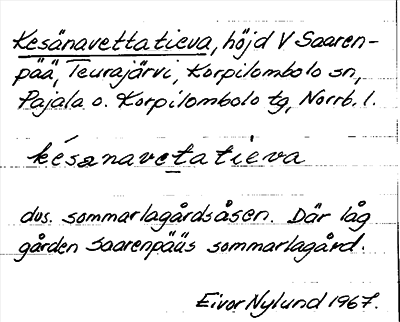 Kesänavettatieva, höjd V Saaren-
pää, Teurajärvi, Korpilombolo sn,
Pajala o. Korpilombolo tg, Norrb. l.
késänavetatìeva
dvs. sommarlagårdsåsen. Där låg
gården Saarenpääs sommarlagård.
Eivor Nylund 1967.